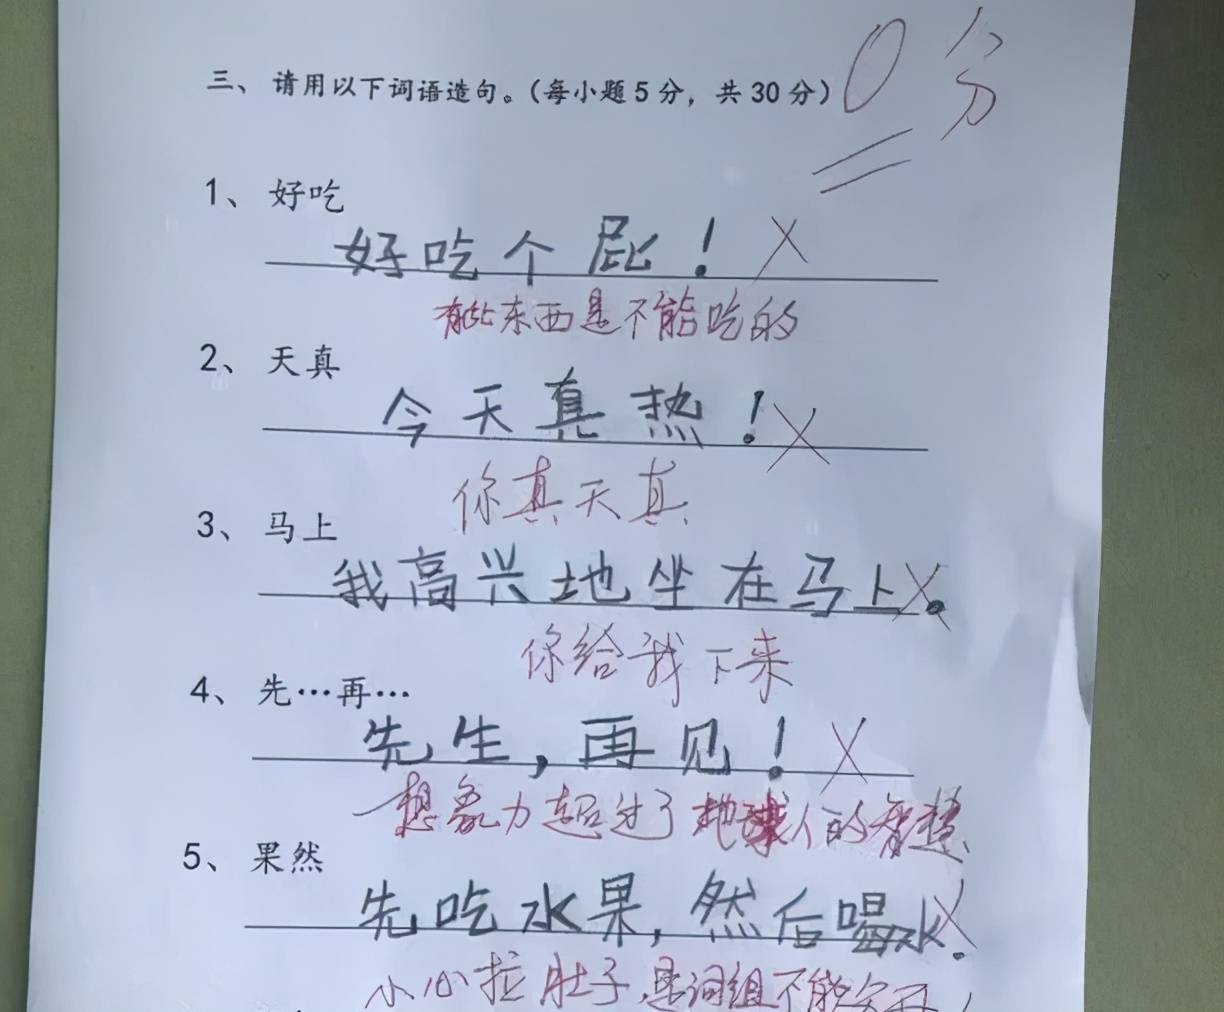 三、请用以下词语造句。(每小题5分，共30分)
0分
1、好吃
好吃个屁！
有些东西是不能吃的
2、天真
今天真热！
你真天真
3、马上
我高兴地坐在马上。
你给我下来
4、先…再…
先生，再见！
想象力超过了地球人的智慧
5、果然
先吃水果，然后喝水。
小心拉肚子，是词组不能分开！